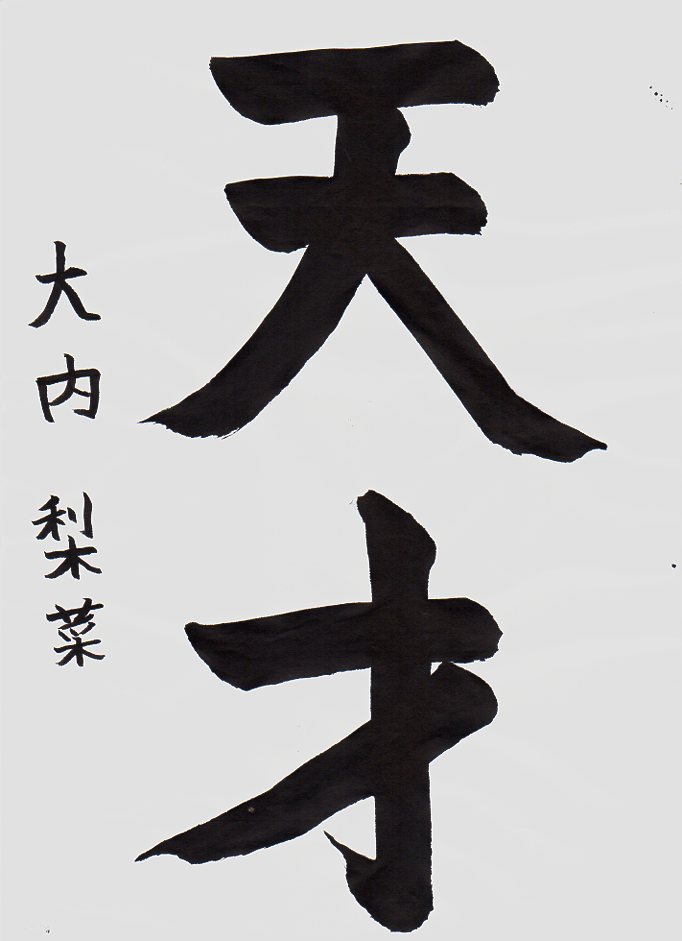 天才
大内 梨菜